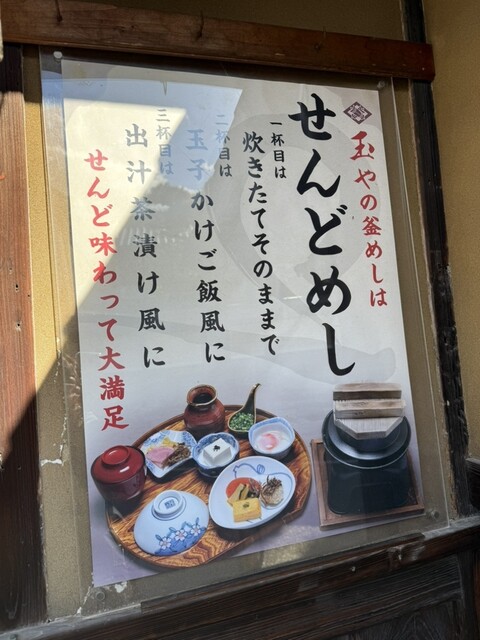 玉やの釜めしは
せんどめし
一杯目は
炊きたてそのままで
二杯目は
玉子かけご飯風に
三杯目は
出汁茶漬け風に
せんど味わって大満足